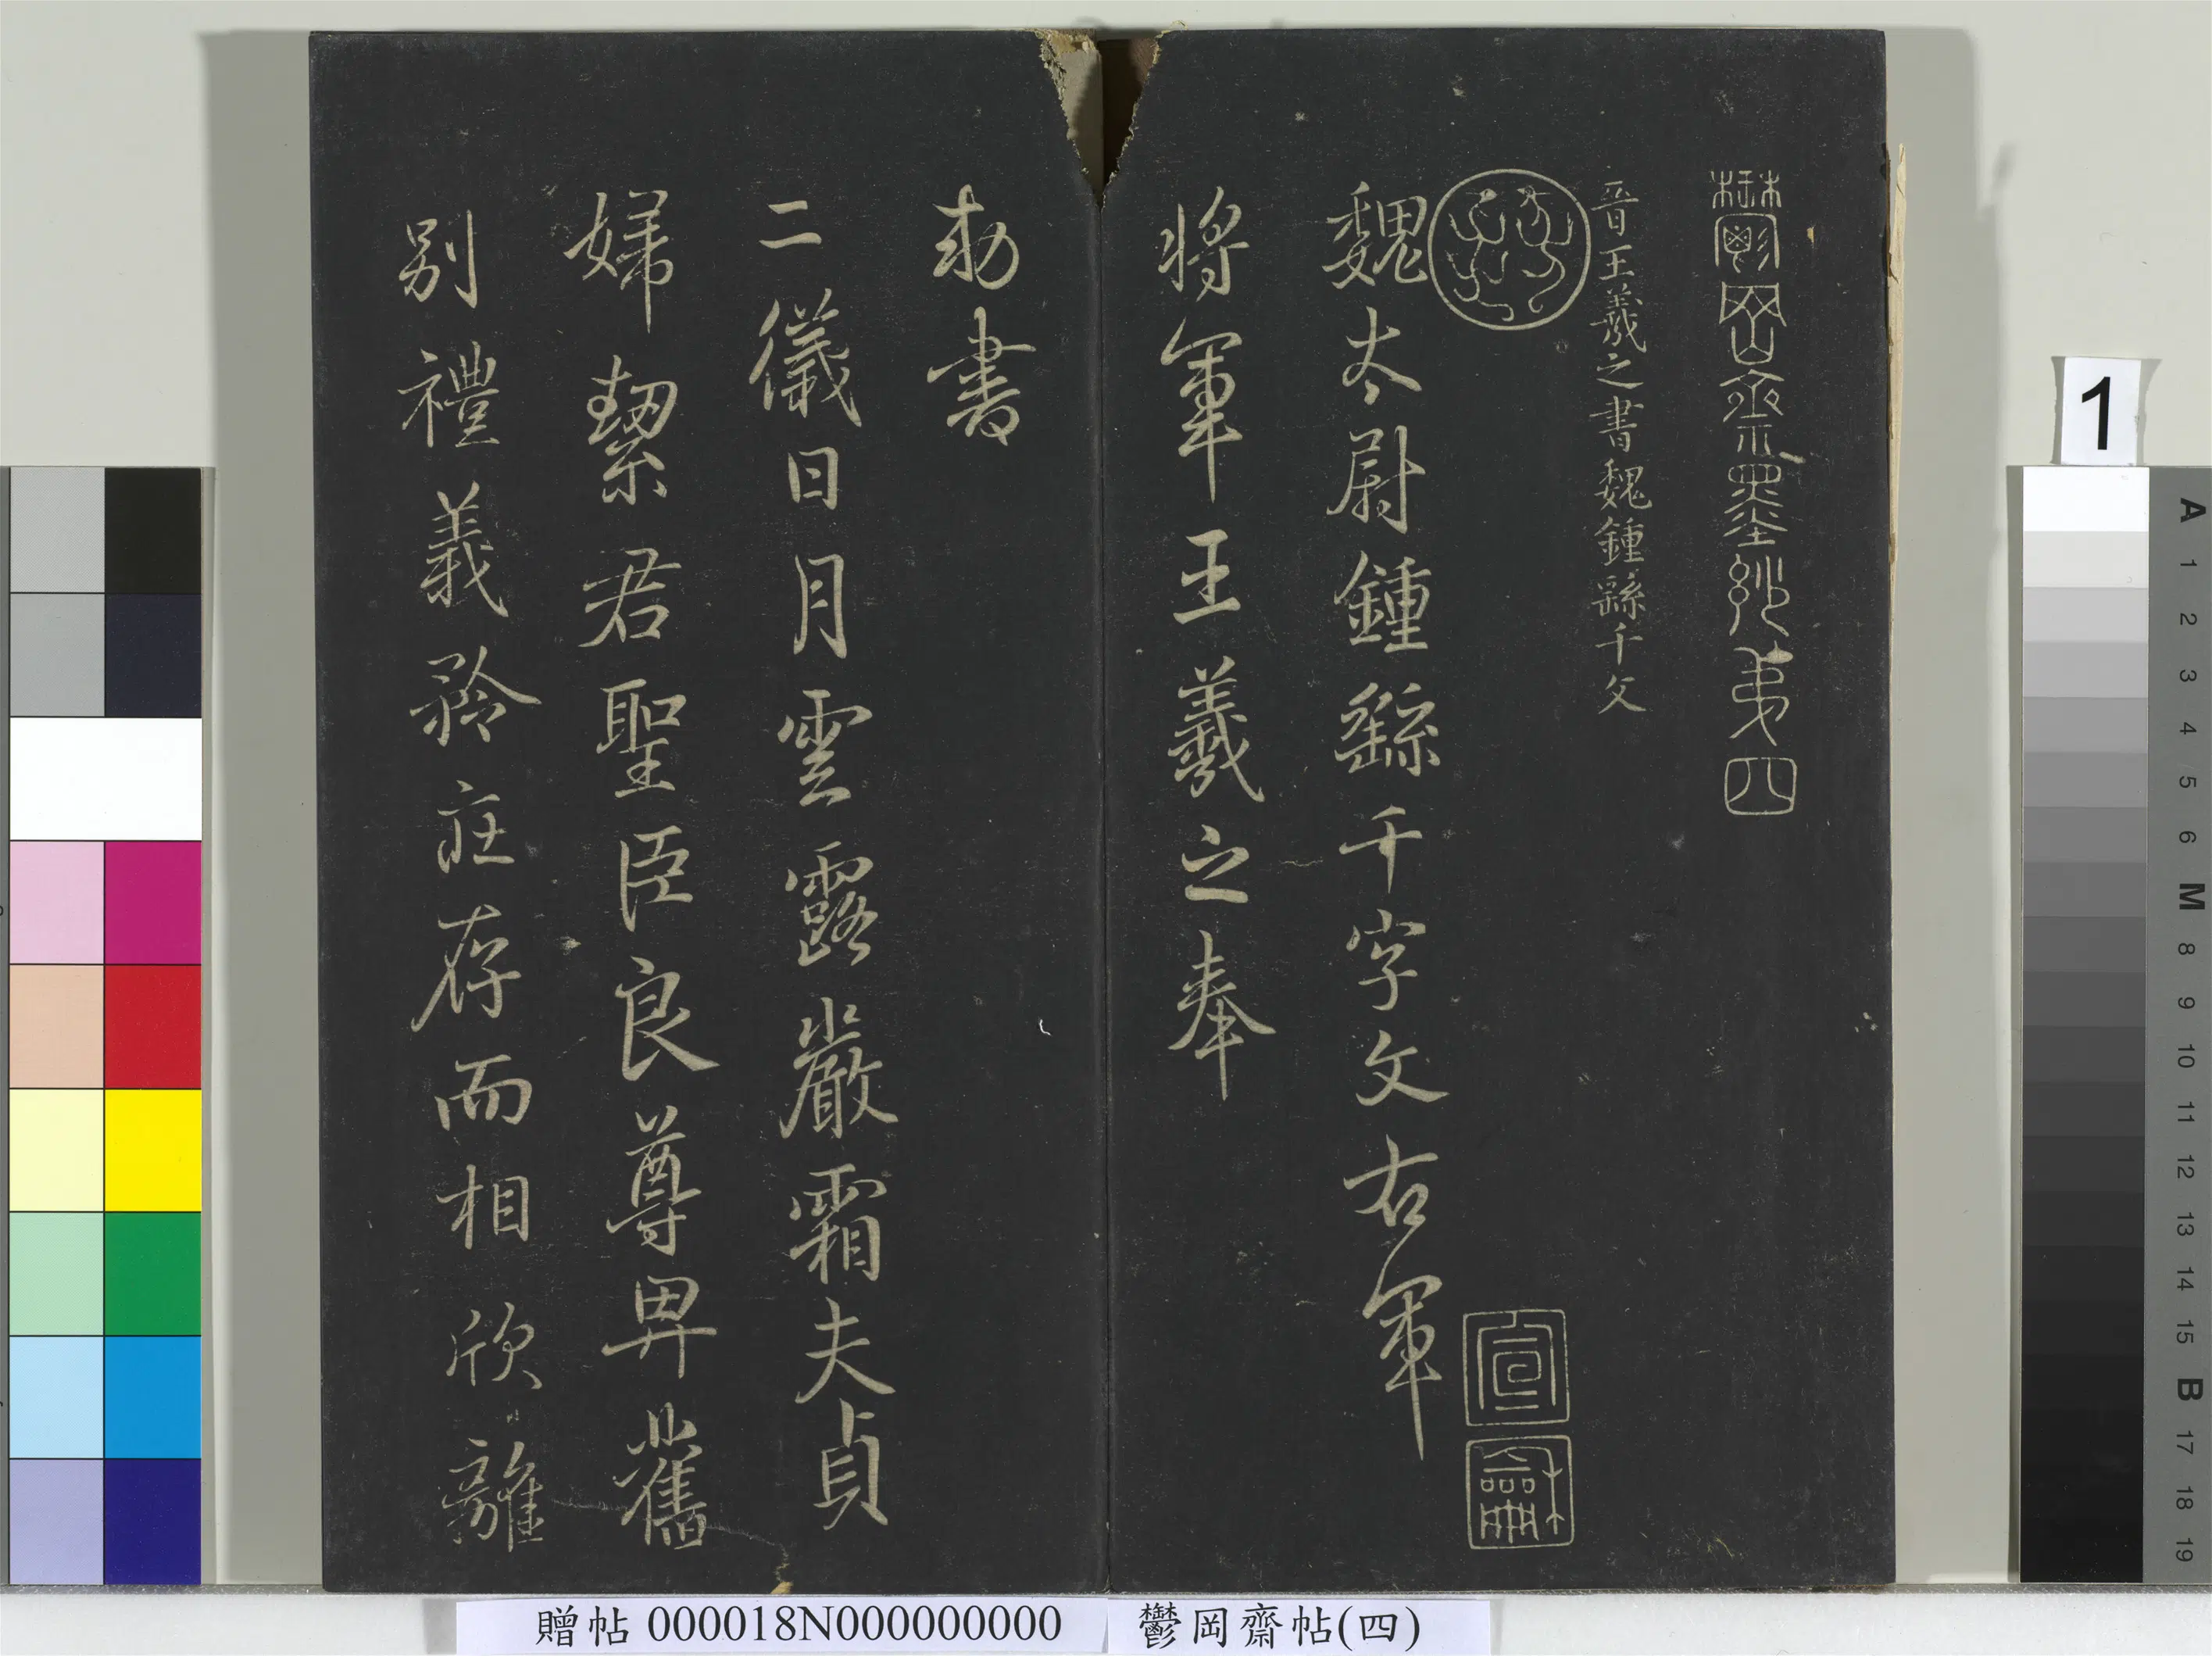 鬱岡齋墨妙第四
晉王羲之書魏鍾繇千文
魏太尉鍾繇千字文右軍
將軍王羲之奉
勅書
二儀日月雲露嚴霜夫貞
婦潔君聖臣良尊卑舊
別禮義矜莊存而相欣離
宣
龢
贈帖 000018N000000000
鬱岡齋帖(四)
1
A
1
2
3
4
5
6
M
8
9
10
11
12
13
14
15
B
17
18
19